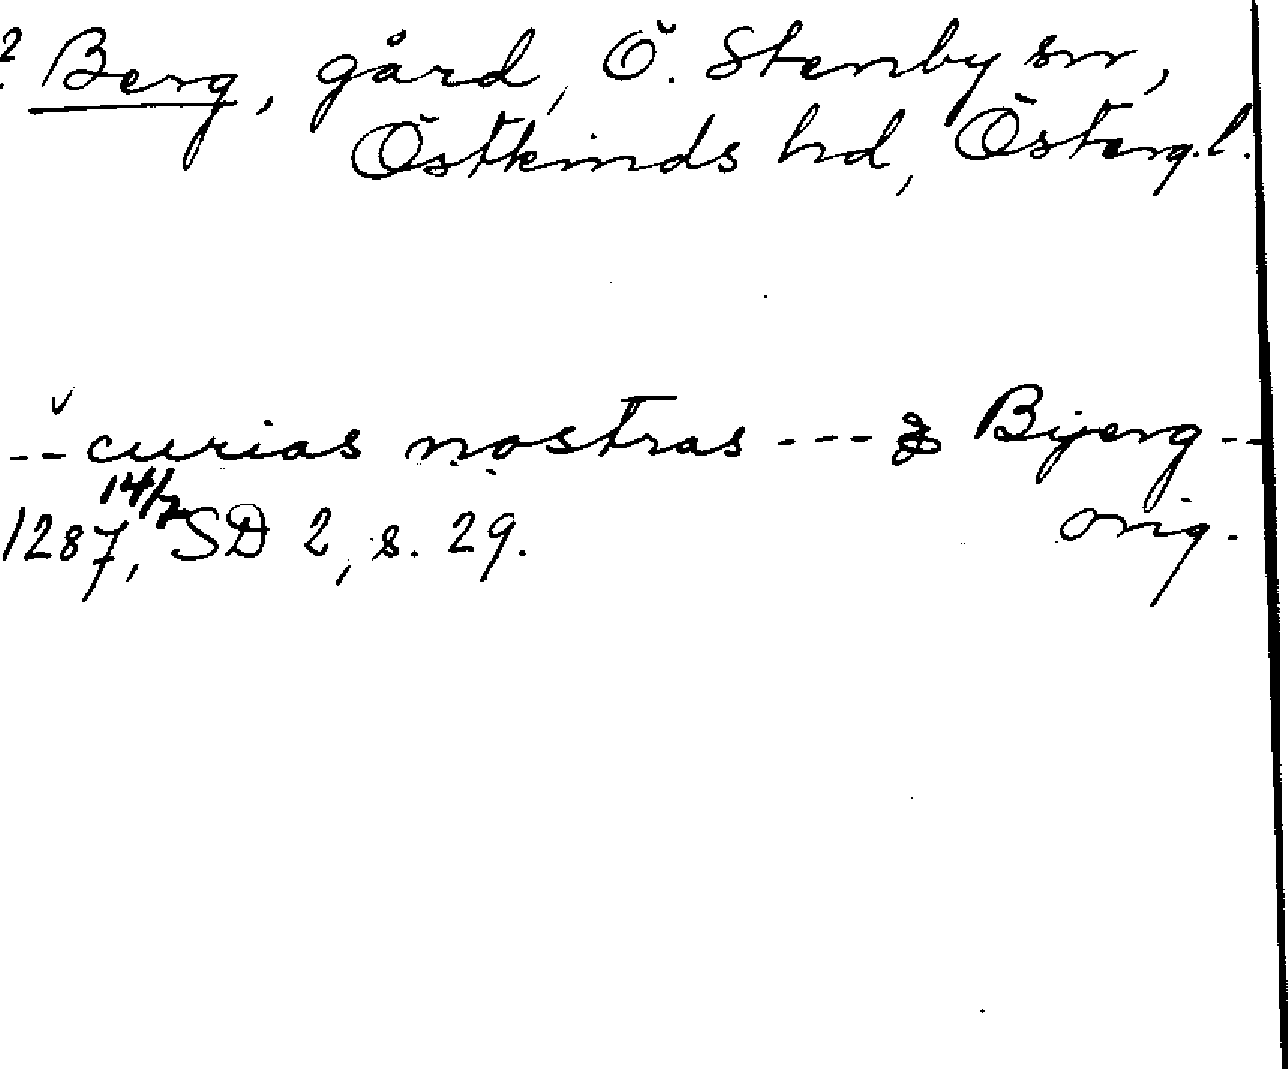 ? Berg, gård, Ö. Stenby sn,
Östkinds hd, Österg.l.
-- curias nostras --- & Bijerg --
1287, 14/2 SD 2, s. 29. orig.